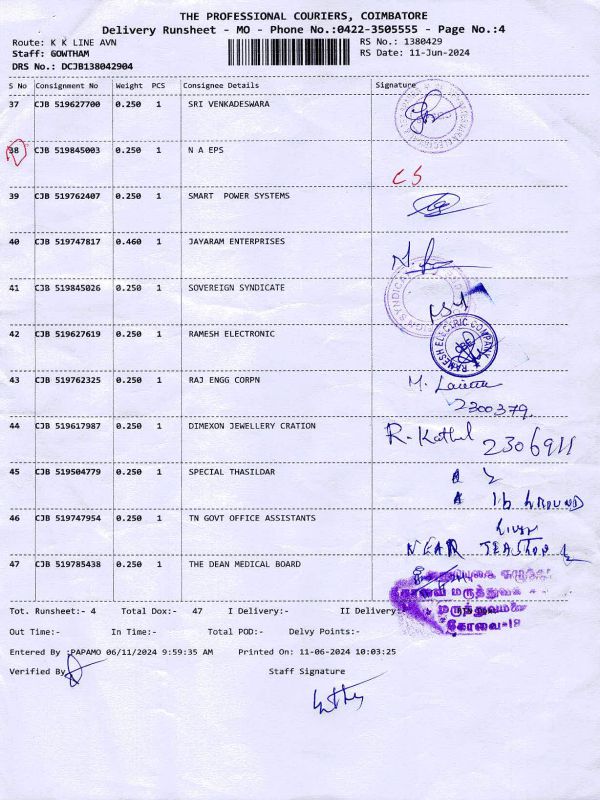 THE PROFESSIONAL COURIERS, COIMBATORE
Delivery Runsheet - MO - Phone No.:0422-3505555 - Page No.:4
Route: K K LINE AVN RS No.: 1380429
Staff: GOWTHAM RS Date: 11-Jun-2024
DRS No.: DCJB138042904
S No Consignment No Weight PCS Consignee Details Signature
37 CJB 519627700 0.250 1 SRI VENKADESWARA
38 CJB 519845003 0.250 1 N A EPS
CS
39 CJB 519762407 0.250 1 SMART POWER SYSTEMS
40 CJB 519747817 0.460 1 JAYARAM ENTERPRISES
41 CJB 519845026 0.250 1 SOVEREIGN SYNDICATE
42 CJB 519627619 0.250 1 RAMESH ELECTRONIC
RAMESH ELECTRIC COMPANY
CBE
43 CJB 519762325 0.250 1 RAJ ENGG CORPN
2300379.
44 CJB 519617987 0.250 1 DIMEXON JEWELLERY CRATION
2306911
45 CJB 519504779 0.250 1 SPECIAL THASILDAR
GROUND
46 CJB 519747954 0.250 1 TN GOVT OFFICE ASSISTANTS
NEAR
47 CJB 519785438 0.250 1 THE DEAN MEDICAL BOARD
கோவை மருத்துவ
கோவை-18
Tot. Runsheet:- 4 Total Dox:- 47 I Delivery:- II Delivery:-
Out Time:- In Time:- Total POD:- Delvy Points:-
Entered By :PAPAMO 06/11/2024 9:59:35 AM Printed On: 11-06-2024 10:03:25
Verified By Staff Signature